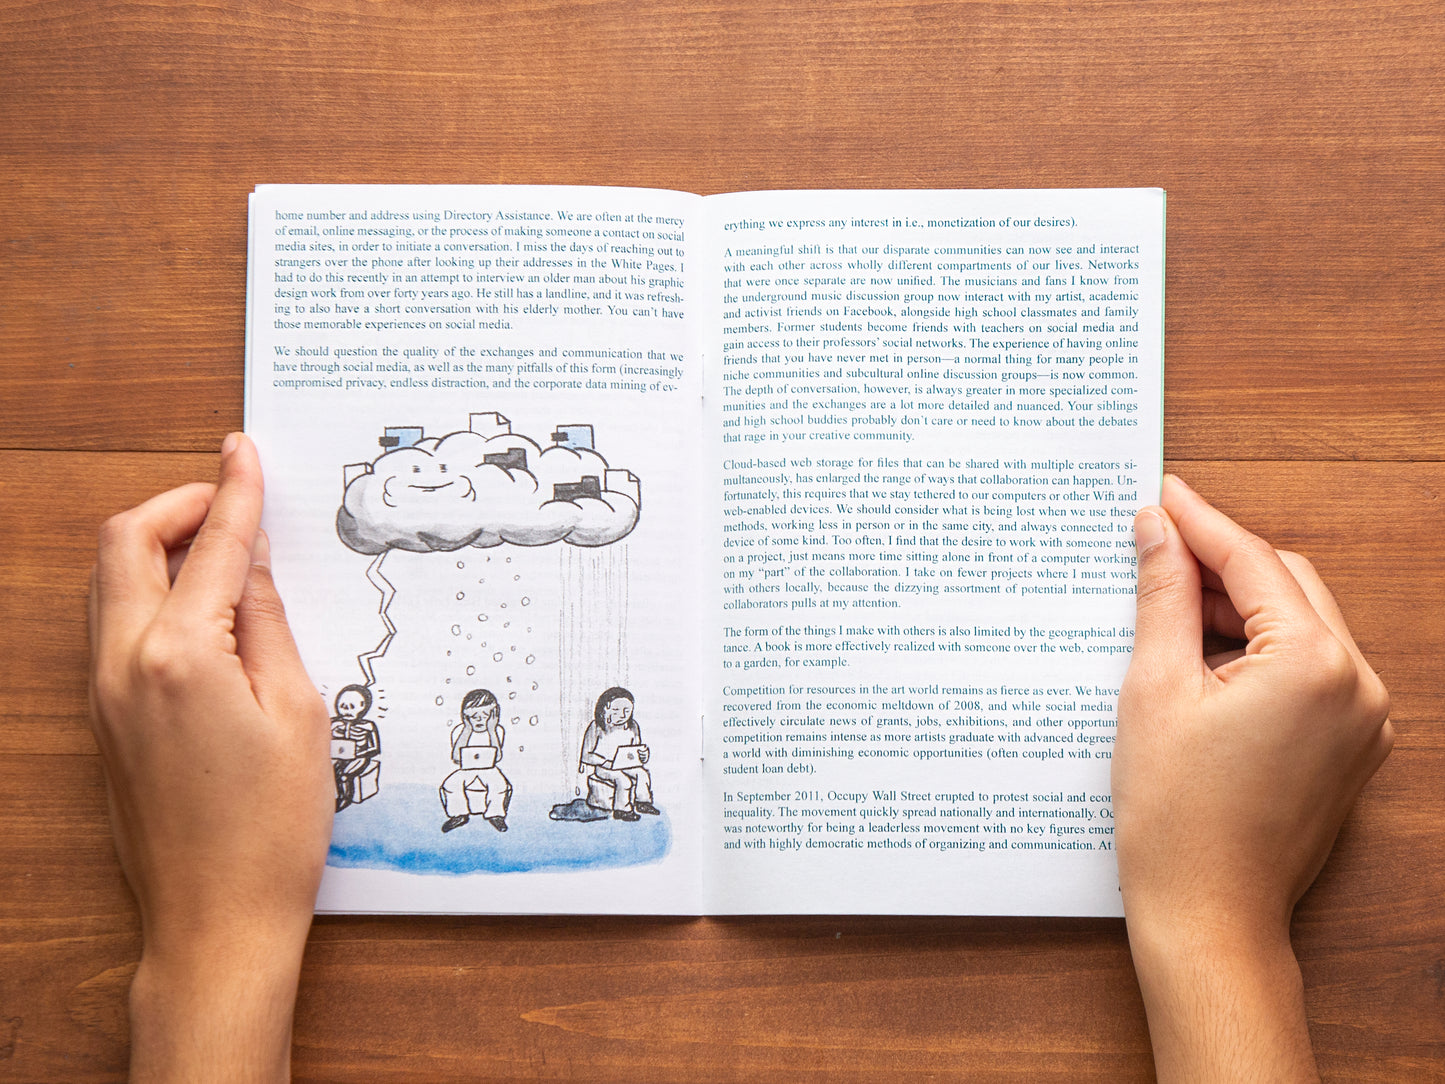 home number and address using Directory Assistance. We are often at the mercy
of email, online messaging, or the process of making someone a contact on social
media sites, in order to initiate a conversation. I miss the days of reaching out to
strangers over the phone after looking up their addresses in the White Pages. I
had to do this recently in an attempt to interview an older man about his graphic
design work from over forty years ago. He still has a landline, and it was refresh-
ing to also have a short conversation with his elderly mother. You can't have
those memorable experiences on social media.
We should question the quality of the exchanges and communication that we
have through social media, as well as the many pitfalls of this form (increasingly
compromised privacy, endless distraction, and the corporate data mining of ev-
erything we express any interest in i.e., monetization of our desires).
A meaningful shift is that our disparate communities can now see and interact
with each other across wholly different compartments of our lives. Networks
that were once separate are now unified. The musicians and fans I know from
the underground music discussion group now interact with my artist, academic
and activist friends on Facebook, alongside high school classmates and family
members. Former students become friends with teachers on social media and
gain access to their professors' social networks. The experience of having online
friends that you have never met in person—a normal thing for many people in
niche communities and subcultural online discussion groups—is now common.
The depth of conversation, however, is always greater in more specialized com-
munities and the exchanges are a lot more detailed and nuanced. Your siblings
and high school buddies probably don't care or need to know about the debates
that rage in your creative community.
Cloud-based web storage for files that can be shared with multiple creators si-
multaneously, has enlarged the range of ways that collaboration can happen. Un-
fortunately, this requires that we stay tethered to our computers or other Wifi and
web-enabled devices. We should consider what is being lost when we use these
methods, working less in person or in the same city, and always connected to a
device of some kind. Too often, I find that the desire to work with someone new
on a project, just means more time sitting alone in front of a computer working
on my “part” of the collaboration. I take on fewer projects where I must work
with others locally, because the dizzying assortment of potential international
collaborators pulls at my attention.
The form of the things I make with others is also limited by the geographical dis-
tance. A book is more effectively realized with someone over the web, compared
to a garden, for example.
Competition for resources in the art world remains as fierce as ever. We have
recovered from the economic meltdown of 2008, and while social media
effectively circulate news of grants, jobs, exhibitions, and other
competition remains intense as more artists graduate with advanced degrees
a world with diminishing economic opportunities (often coupled with
student loan debt).
In September 2011, Occupy Wall Street erupted to protest social and
inequality. The movement quickly spread nationally and internationally.
was noteworthy for being a leaderless movement with no key figures
and with highly democratic methods of organizing and communication. At